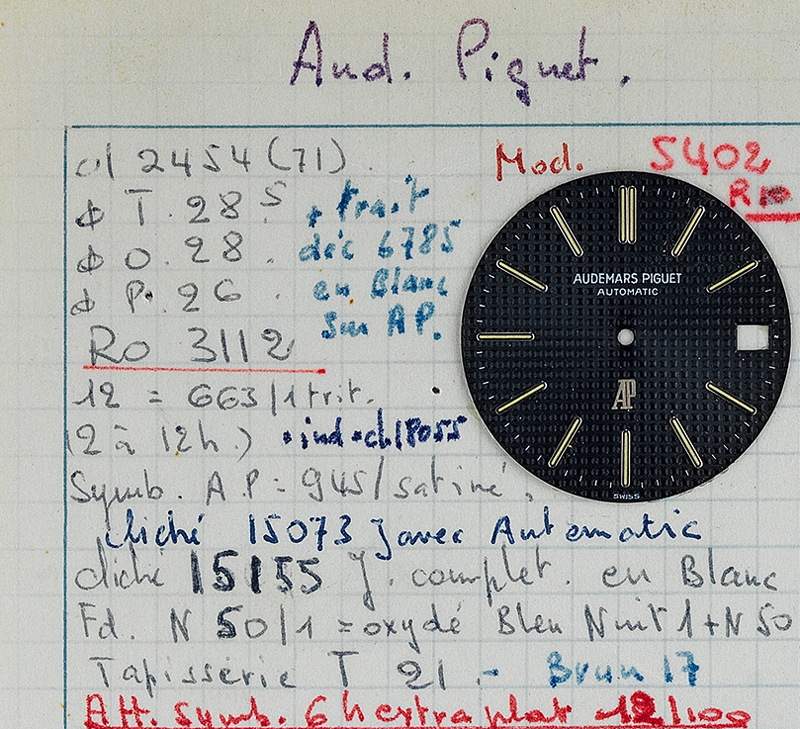 Aud. Piguet.
cl 2454 (71).
Mod. 5402
ϕ T. 28 5
+ trait
R10
ϕ O. 28.
déc 6785
ϕ P. 26.
en Blanc
Ro 3112
sur AP.
AUDEMARS PIGUET
AUTOMATIC
AP
SWISS
12 = 663/1 trit.
(2 à 12h.) . ind. cl 18055
Symb. A P = 945/satiné.
cliché 15073 J avec Automatic
cliché 15155 J. complet. en Blanc
Fd. N 50/1 = oxydé Bleu Nuit 1 + N 50
Tapisserie T 21.- Brun 17
Att. symb. 6h extra plat 12/100